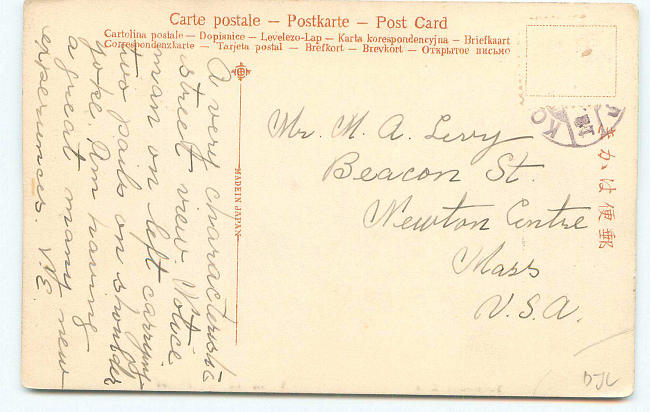 Carte postale — Postkarte — Post Card
Cartolina postale — Dopisnice — Levelezo-Lap — Karta korespondencyjna — Briefkaart
Correspondenzkarte — Tarjeta postal — Brefkort — Brevkort — Открытое письмо
A very characteristic
street view. Notice
man on left carrying
two pails on shoulder
yoke. Am having
a great many new
experiences. V.E.
MADE IN JAPAN
Mr. M. A. Levy
Beacon St.
Newton Centre
Mass
U.S.A.
KO
郵便はかき
DJL